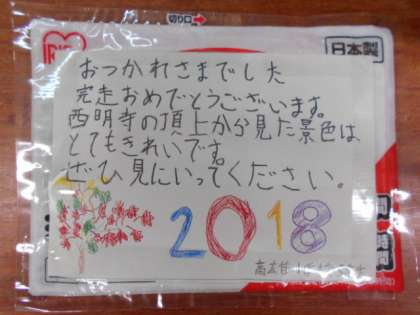 切り口
IRIS
日本製
おつかれさまでした
完走おめでとうございます。
西明寺の頂上から見た景色は
とてもきれいです。
ぜひ見にいってください。
2018
時間